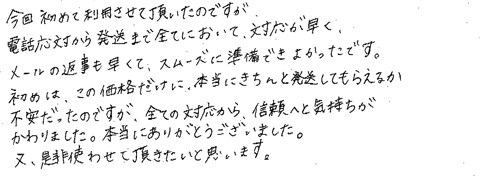 今回 初めて利用させて頂いたのですが
電話応対から発送まで全てにおいて、対応が早く、
メールの返事も早くて、スムーズに準備できよかったです。
初めは、この価格だけに、本当にきちんと発送してもらえるか
不安だったのですが、全ての対応から、信頼へと気持ちが
かわりました。本当にありがとうございました。
又、是非使わせて頂きたいと思います。